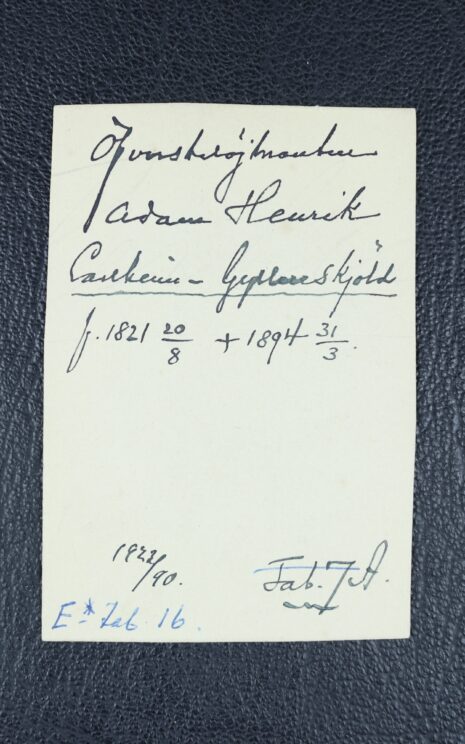 Öfverstelöjtnanten
Adam Henrik
Carlheim-Gyllensköld
f. 1821 20/8 + 1894 31/3.
1922/90.
Tab. 7 A.
Tab 16.